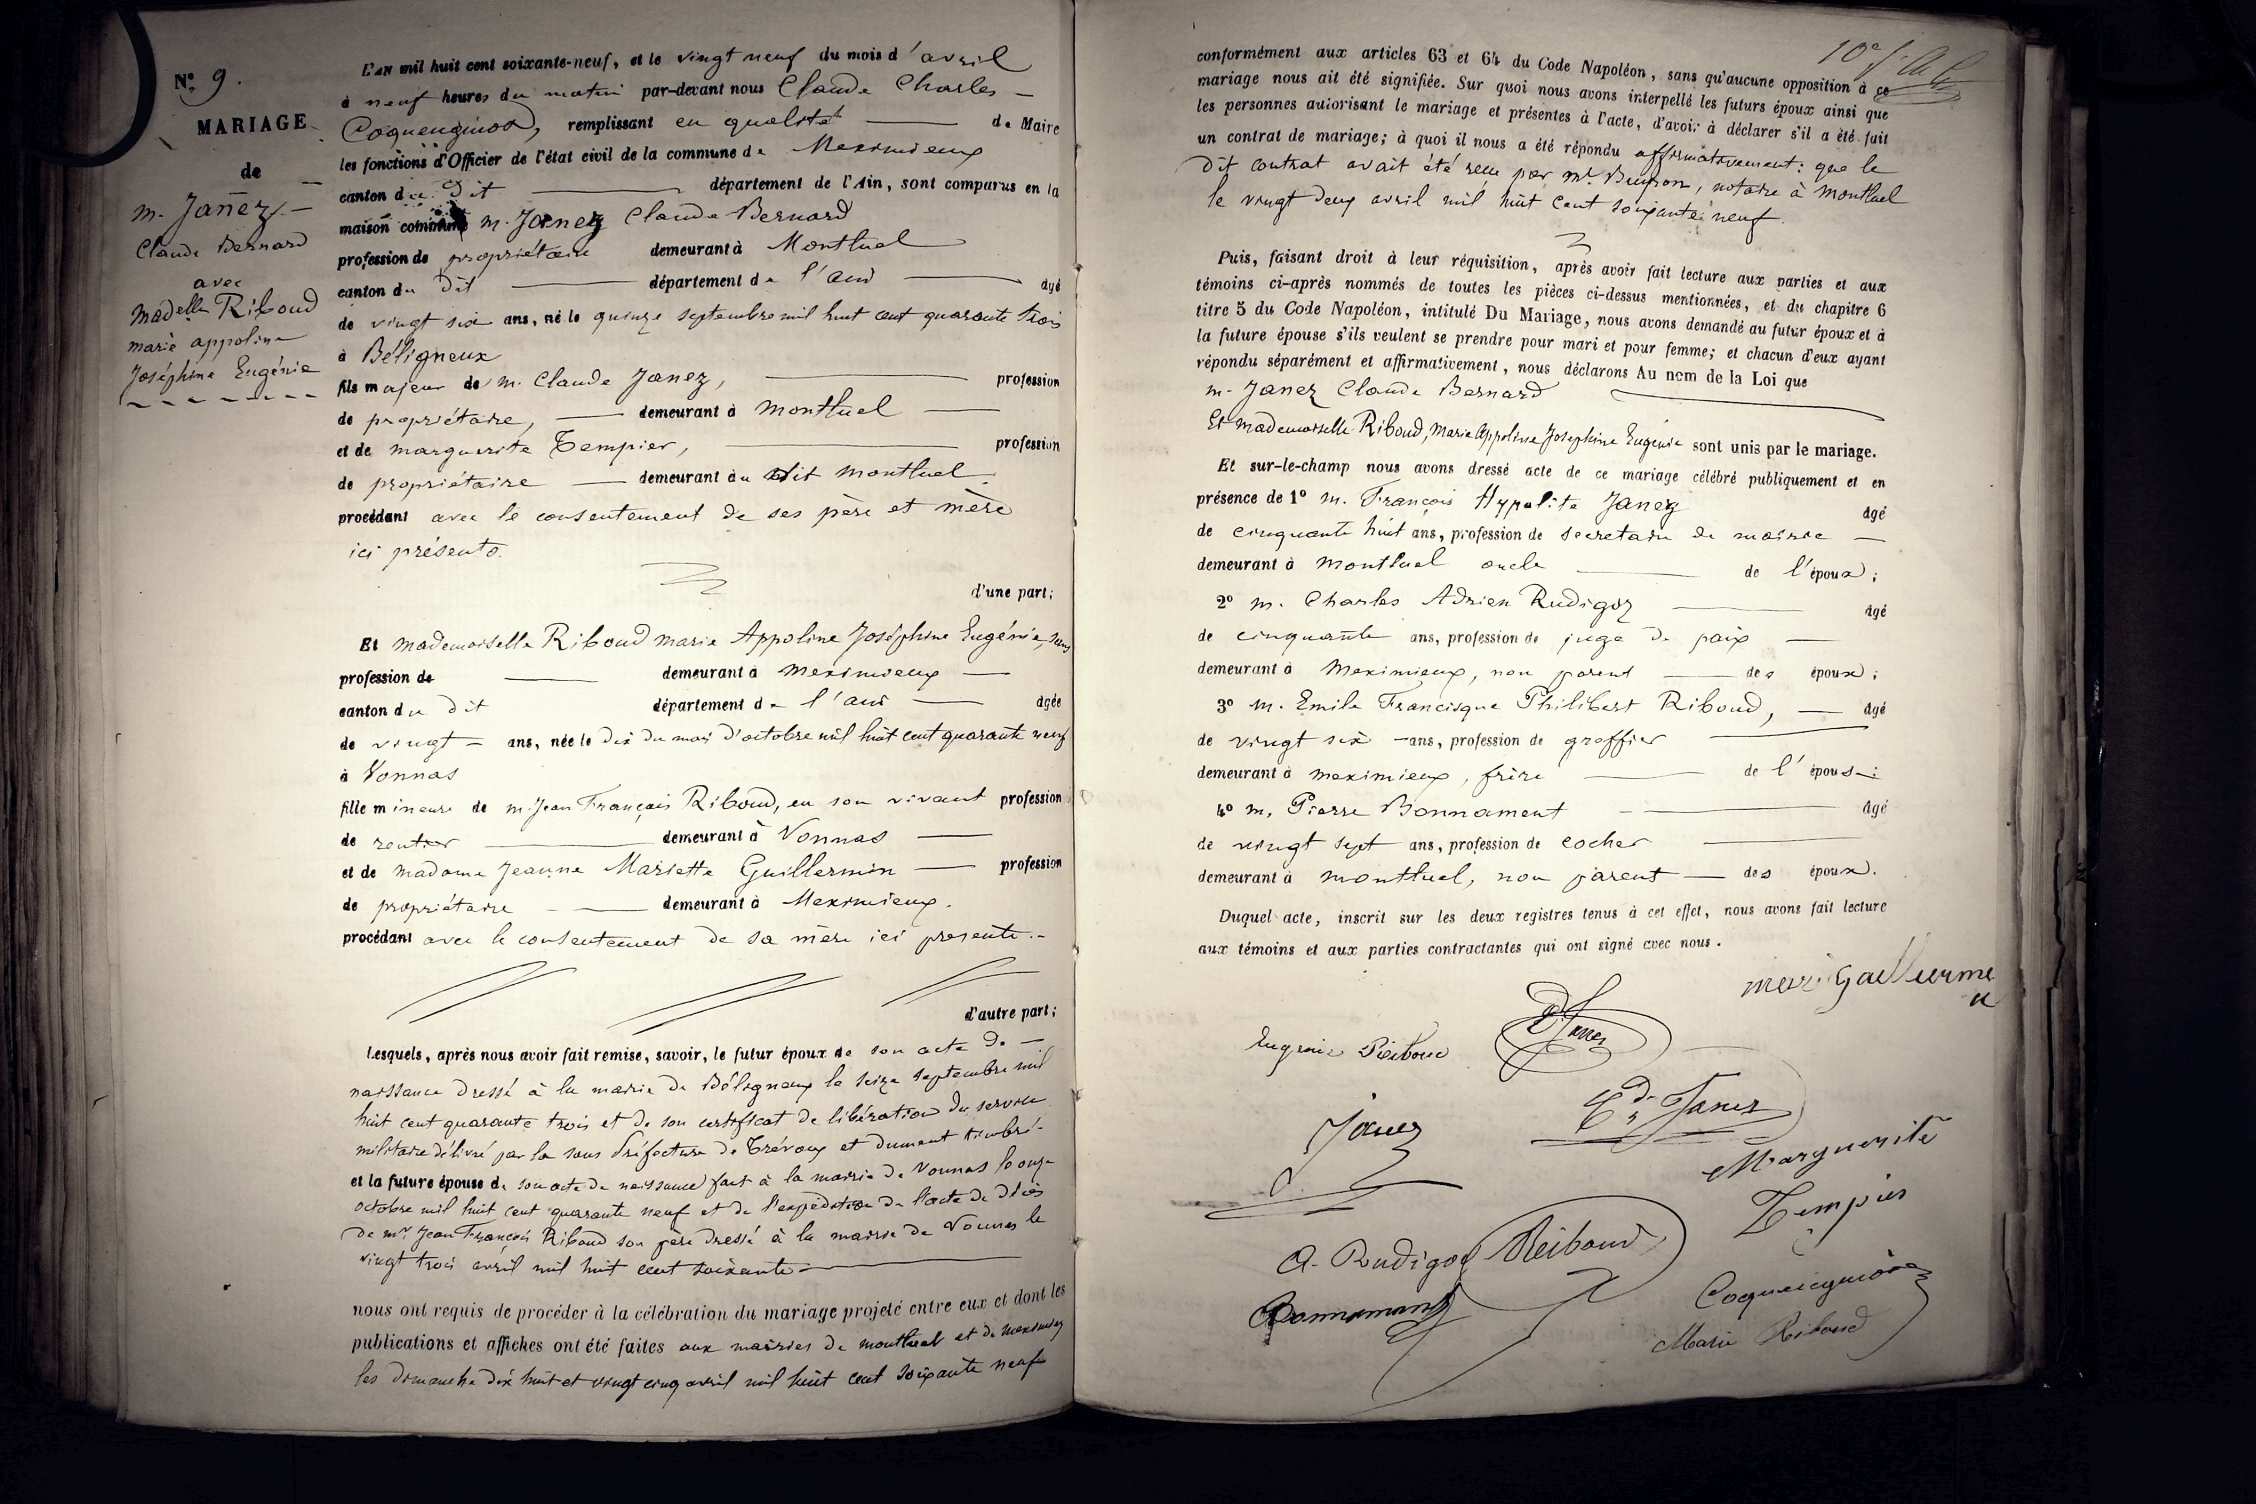 N.o 9.
MARIAGE
de
m. Janez. —
Claude Bernard
avec
Madelle Riboud
marie appoline
Joséphine Eugénie
L'an mil huit cent soixante-neuf, et le vingt neuf du mois d'avril
à neuf heures du matin par-devant nous Claude Charles —
remplissant en qualité de Maire
les fonctions d'Officier de l'état civil de la commune de Meximieux
canton du dit département de l'Ain, sont comparus en la
maison commune m. Janez Claude Bernard
profession de propriétaire demeurant à Montluel
canton du dit département de l'ain âgé
de vingt six ans, né le quinze septembre mil huit cent quarante trois
à Béligneux
fils majeur de m. Claude Janez, profession
de propriétaire, demeurant à Montluel
et de marguerite Tempier, profession
de propriétaire demeurant au dit montluel.
procédant avec le consentement de ses père et mère
ici présents.
d'une part;
Et mademoiselle Riboud marie Appoline Joséphine Eugénie, sans
profession de demeurant à meximieux
canton du dit département de l'ain âgée
de vingt ans, née le dix du mois d'octobre mil huit cent quarante neuf
à Vonnas
fille mineure de m. Jean François Riboud, en son vivant profession
de rentier demeurant à Vonnas
et de madame Jeanne Mariette Guillermin profession
de propriétaire demeurant à Meximieux.
procédant avec le consentement de sa mère ici présente.
d'autre part;
Lesquels, après nous avoir fait remise, savoir, le futur époux de son acte de
naissance dressé à la mairie de Béligneux le seize septembre mil
huit cent quarante trois et de son certificat de libération du service
militaire délivré par la sous préfecture de Trévoux et dument timbré
et la future épouse de son acte de naissance fait à la mairie de Vonnas le onze
octobre mil huit cent quarante neuf et de l'expédition de l'acte de décès
de mr Jean François Riboud son père dressé à la mairie de Vonnas le
vingt trois avril mil huit cent soixante
nous ont requis de procéder à la célébration du mariage projeté entre eux et dont les
publications et affiches ont été faites aux mairies de montluel et de meximieux
les dimanche dix huit et vingt cinq avril mil huit cent soixante neuf
conformément aux articles 63 et 64 du Code Napoléon, sans qu'aucune opposition à ce
mariage nous ait été signifiée. Sur quoi nous avons interpellé les futurs époux ainsi que
les personnes autorisant le mariage et présentes à l'acte, d'avoir à déclarer s'il a été fait
un contrat de mariage; à quoi il nous a été répondu affirmativement: que le
dit contrat avait été reçu par Mr. notaire à Montluel
le vingt deux avril mil huit cent soixante neuf.
Puis, faisant droit à leur réquisition, après avoir fait lecture aux parties et aux
témoins ci-après nommés de toutes les pièces ci-dessus mentionnées, et du chapitre 6
titre 5 du Code Napoléon, intitulé Du Mariage, nous avons demandé au futur époux et à
la future épouse s'ils veulent se prendre pour mari et pour femme; et chacun d'eux ayant
répondu séparément et affirmativement, nous déclarons Au nom de la Loi que
m. Janez Claude Bernard
Et mademoiselle Riboud, Marie Appoline Joséphine Eugénie sont unis par le mariage.
Et sur-le-champ nous avons dressé acte de ce mariage célébré publiquement et en
présence de 1o m. François Hypolite Janez âgé
de cinquante huit ans, profession de secretaire de mairie
demeurant à Montluel oncle de l'époux;
2o m. Charles Adrien Rudigoz âgé
de cinquante ans, profession de juge de paix
demeurant à Meximieux, non parent des époux;
3o m. Emile Francisque Philibert Riboud, âgé
de vingt six ans, profession de greffier
demeurant à meximieux, frère de l'épouse;
4o m. Pierre Bonnament âgé
de vingt sept ans, profession de cocher
demeurant à montluel, non parent des époux.
Duquel acte, inscrit sur les deux registres tenus à cet effet, nous avons fait lecture
aux témoins et aux parties contractantes qui ont signé avec nous.
Eugénie Riboud
Janez
Janez
Janez
Marguerite
Tempier
A. Rudigoz
Riboud
Bonnamant
Marie Riboud